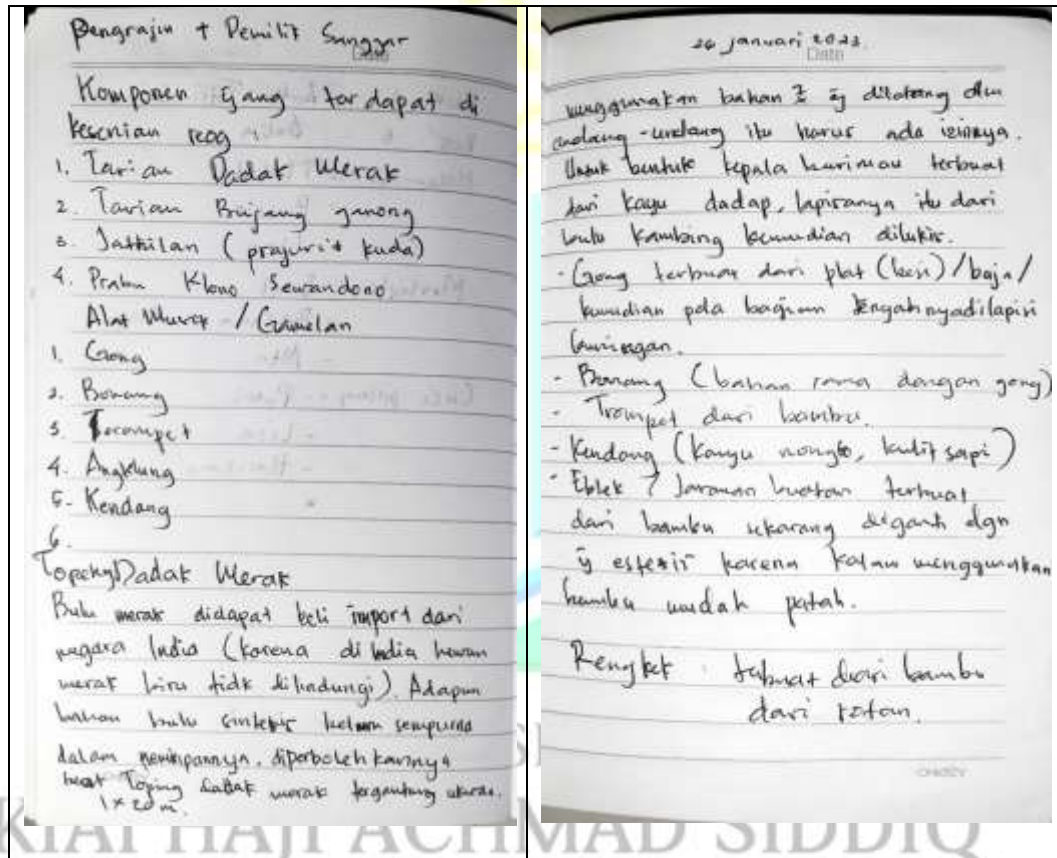 Pengrajin + Pemilik Sanggar
Date
Komponen yang terdapat di
kesenian reog :
1. Tarian Dadak Merak
2. Tarian Bujang ganong
3. Jathilan (prajurit kuda)
4. Prabu Klono Sewandono
Alat Musik / Gamelan
1. Gong
2. Bonang
3. Terompet
4. Angklung
5. Kendang
6.
Topeng Dadak Merak
Bulu merak didapat beli import dari
negara India (karena di India hewan
merak biru tidk dilindungi). Adapun
bahan bulu sintetis belum sempurna
dalam diperbolehkannya
Toping dadak merak tergantung
1 x 20 m.
26 januari 2023
Date
menggunakan bahan yg dilarang dlm
undang-undang itu harus ada izinnya.
Untuk bentuk kepala harimau terbuat
dari kayu dadap, lapisanya itu dari
bulu kambing kemudian dilukis.
- Gong terbuat dari plat (besi)/baja/
kemudian pda bagian tengahnya dilapisi
kuningan.
- Bonang (bahan sama dengan gong)
- Trompet dari bambu.
- Kendang (kayu nongko, kulit sapi)
- Eblek / Jaranan buatan terbuat
dari bambu sekarang diganti dgn
yg karena kalau menggunakan
bambu mudah patah.
Rengkek : terbuat dari bambu
dari rotan.
KIAI HAJI ACHMAD SIDDIQ